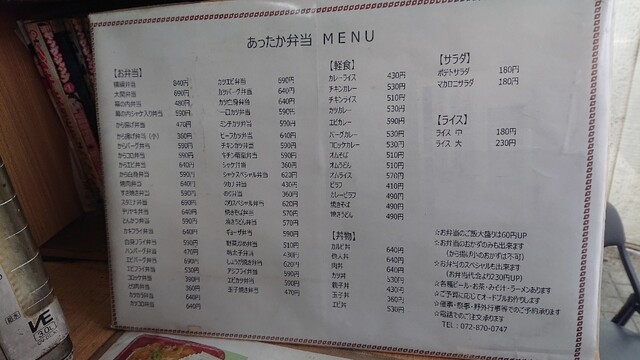 あったか弁当 MENU
【お弁当】
横綱弁当 840円
大関弁当 690円
幕の内弁当 480円
幕の内シャケ入り弁当 590円
から揚げ弁当 470円
から揚げ弁当（小） 360円
からバーグ弁当 590円
からコロ弁当 590円
からエビ弁当 640円
から白身弁当 590円
焼肉弁当 640円
すき焼き弁当 590円
スタミナ弁当 690円
テリヤキ弁当 640円
とんかつ弁当 590円
カキフライ弁当 640円
白身フライ弁当 590円
ハンバーグ弁当 470円
エビバーグ弁当 690円
エビフライ弁当 530円
コロッケ弁当 390円
カツカラ弁当 640円
カツコロ弁当 640円
カツエビ弁当 690円
カツバーグ弁当 640円
カツ白身弁当 640円
一口カツ弁当 590円
ミンチカツ弁当 590円
ビーフカツ弁当 640円
チキンカツ弁当 590円
チキン南蛮弁当 590円
シャケ弁当 360円
シャケスペシャル弁当 620円
タカナ弁当 430円
のり弁当 360円
のりスペシャル弁当 620円
焼きそば弁当 570円
焼きうどん弁当 570円
ギョーザ弁当 590円
野菜炒め弁当 510円
明太子弁当 430円
しょうが焼き弁当 620円
アジフライ弁当 590円
エビカツ弁当 590円
玉子焼き弁当 470円
【軽食】
カレーライス 430円
チキンカレー 530円
チキンライス 510円
カツカレー 530円
エビカレー 590円
バーグカレー 530円
コロッケカレー 530円
オムそば 510円
オムうどん 510円
オムライス 570円
ピラフ 410円
カレーピラフ 490円
焼きそば 490円
焼きうどん 490円
【丼物】
カルビ丼 640円
他人丼 640円
肉丼 640円
カツ丼 640円
親子丼 530円
玉子丼 430円
エビ丼 530円
【サラダ】
ポテトサラダ 180円
マカロニサラダ 180円
【ライス】
ライス 中 180円
ライス 大 230円
☆お弁当のご飯大盛りは60円UP
☆お弁当のおかずのみも出来ます
（から揚げ小のおかずは不可）
☆お弁当のスペシャルも出来ます
（お弁当代金より230円UP）
☆各種ビール・お茶・みそ汁・ラーメンあります
☆ご予算に応じてオードブルお作りします
☆催事・慰事・野外行事等でのご予約承ります
☆電話でのご注文承ります
TEL：072-870-0747